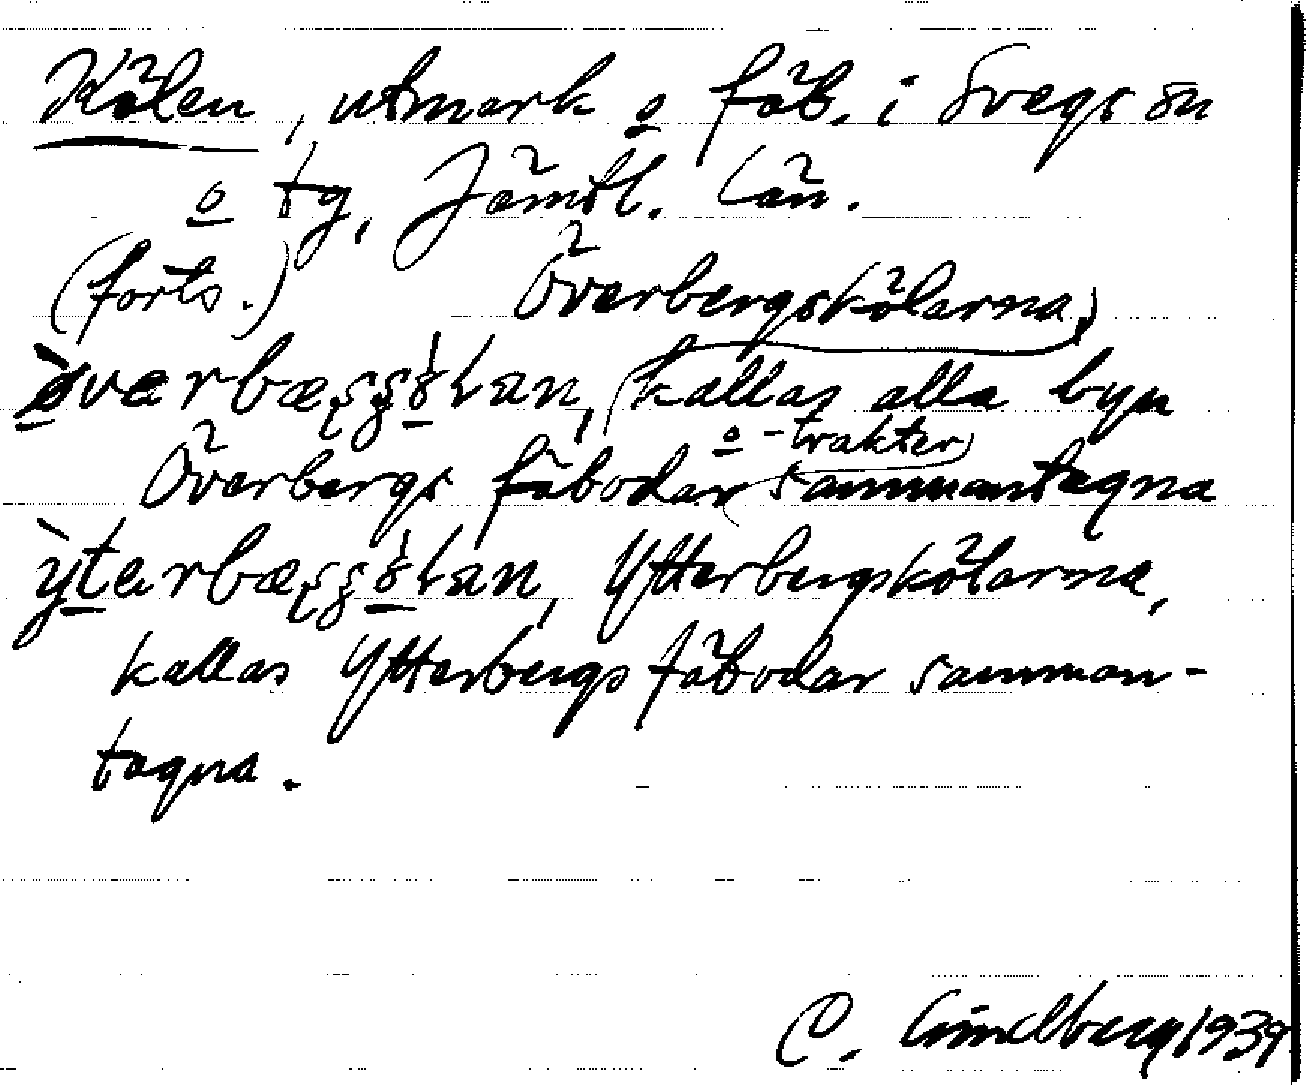 Kölen, utmark o fäb. i Svegs sn
o tg, Jämtl. län.
(forts.) Överbergskölarna,
kallas alla byn
o -trakter
Överbergs fäbodar sammantagna
Ytterbergskölarna,
kallas Ytterbergs fäbodar samman-
tagna.
C. Lindberg 1939